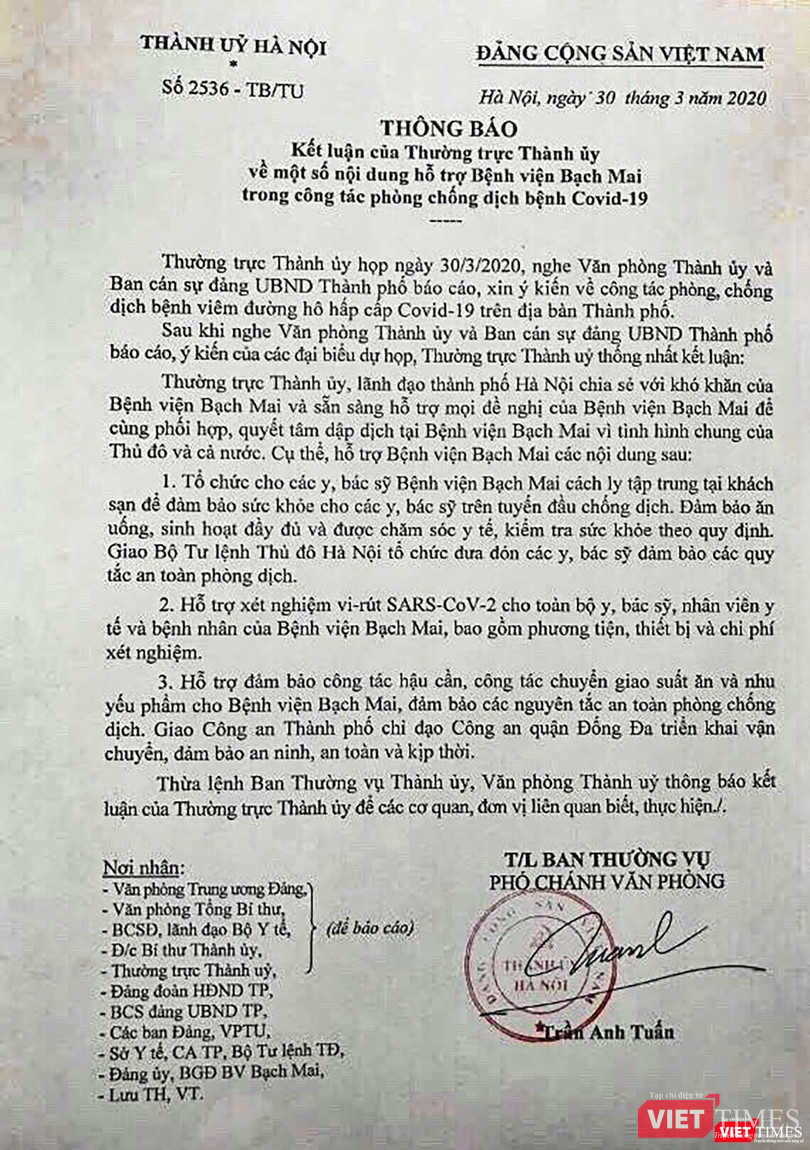 THÀNH UỶ HÀ NỘI
*
Số 2536 - TB/TU
ĐẢNG CỘNG SẢN VIỆT NAM
Hà Nội, ngày 30 tháng 3 năm 2020
THÔNG BÁO
Kết luận của Thường trực Thành ủy
về một số nội dung hỗ trợ Bệnh viện Bạch Mai
trong công tác phòng chống dịch bệnh Covid-19
-----
Thường trực Thành ủy họp ngày 30/3/2020, nghe Văn phòng Thành ủy và
Ban cán sự đảng UBND Thành phố báo cáo, xin ý kiến về công tác phòng, chống
dịch bệnh viêm đường hô hấp cấp Covid-19 trên địa bàn Thành phố.
Sau khi nghe Văn phòng Thành ủy và Ban cán sự đảng UBND Thành phố
báo cáo, ý kiến của các đại biểu dự họp, Thường trực Thành uỷ thống nhất kết luận:
Thường trực Thành ủy, lãnh đạo thành phố Hà Nội chia sẻ với khó khăn của
Bệnh viện Bạch Mai và sẵn sàng hỗ trợ mọi đề nghị của Bệnh viện Bạch Mai để
cùng phối hợp, quyết tâm dập dịch tại Bệnh viện Bạch Mai vì tình hình chung của
Thủ đô và cả nước. Cụ thể, hỗ trợ Bệnh viện Bạch Mai các nội dung sau:
1. Tổ chức cho các y, bác sỹ Bệnh viện Bạch Mai cách ly tập trung tại khách
sạn để đảm bảo sức khỏe cho các y, bác sỹ trên tuyến đầu chống dịch. Đảm bảo ăn
uống, sinh hoạt đầy đủ và được chăm sóc y tế, kiểm tra sức khỏe theo quy định.
Giao Bộ Tư lệnh Thủ đô Hà Nội tổ chức đưa đón các y, bác sỹ đảm bảo các quy
tắc an toàn phòng dịch.
2. Hỗ trợ xét nghiệm vi-rút SARS-CoV-2 cho toàn bộ y, bác sỹ, nhân viên y
tế và bệnh nhân của Bệnh viện Bạch Mai, bao gồm phương tiện, thiết bị và chi phí
xét nghiệm.
3. Hỗ trợ đảm bảo công tác hậu cần, công tác chuyển giao suất ăn và nhu
yếu phẩm cho Bệnh viện Bạch Mai, đảm bảo các nguyên tắc an toàn phòng chống
dịch. Giao Công an Thành phố chỉ đạo Công an quận Đống Đa triển khai vận
chuyển, đảm bảo an ninh, an toàn và kịp thời.
Thừa lệnh Ban Thường vụ Thành ủy, Văn phòng Thành uỷ thông báo kết
luận của Thường trực Thành ủy để các cơ quan, đơn vị liên quan biết, thực hiện./.
Nơi nhận:
- Văn phòng Trung ương Đảng,
- Văn phòng Tổng Bí thư,
- BCSĐ, lãnh đạo Bộ Y tế, (để báo cáo)
- Đ/c Bí thư Thành ủy,
- Thường trực Thành uỷ,
- Đảng đoàn HĐND TP,
- BCS đảng UBND TP,
- Các ban Đảng, VPTU,
- Sở Y tế, CA TP, Bộ Tư lệnh TĐ,
- Đảng ủy, BGĐ BV Bạch Mai,
- Lưu TH, VT.
T/L BAN THƯỜNG VỤ
PHÓ CHÁNH VĂN PHÒNG
ĐẢNG CỘNG SẢN VIỆT NAM
THÀNH ỦY
HÀ NỘI
Trần Anh Tuấn
Tạp chí điện tử
VIETTIMES
VIETTIMES